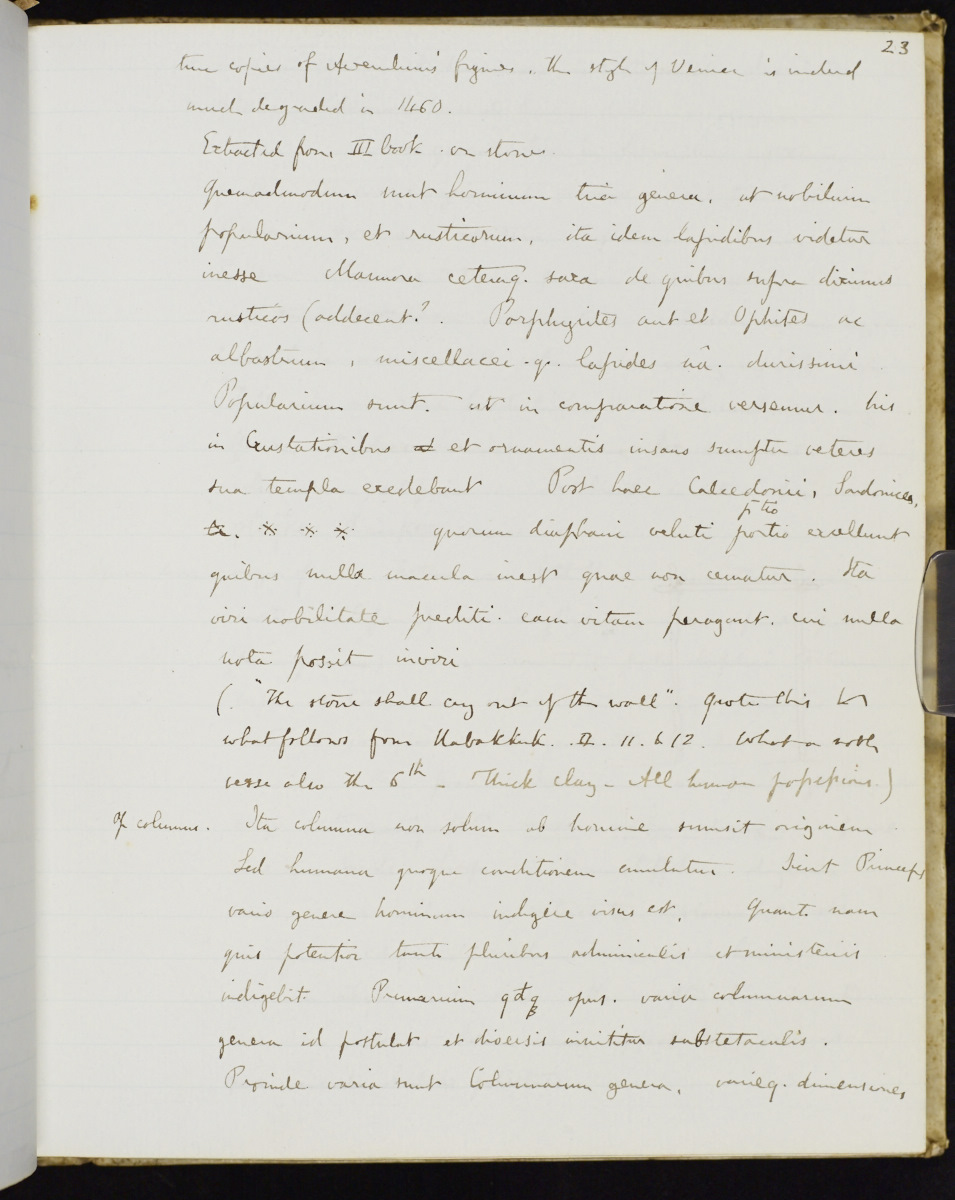 23
true copies of Averulinus' figures. the style of Venice is indeed
much degraded in 1460.
Extracted from III book. on stones.
Quemadmodum sunt hominum tria genera, ut nobilium
popularium, et rusticorum, ita idem lapidibus videtur
inesse Marmora ceteraq. saxa de quibus supra diximus
rusticos (addecent.? . Porphyrites aut et Ophites ac
albastrum, miscellacei-q. lapides nā. durissimi
Popularium sunt. ut in comparatione versemur. his
in Crustationibus et ornamentis insano sumptu veteres
sua templa excdebant Post haec Calcedonii, Sardonices,
p tio
&. * * * quorum diaphani veluti portio excellunt
quibus nulla macula inest quae non cernatur. Ita
viri nobilitate prediti. eam vitam peragant. cui nulla
nota possit inviri
(. "The stone shall cry out of the wall". quote this &
what follows from Habakkuk. II. 11. & 12. What a noble
verse also the 6th - Thick clay - All human possessions.)
Of columns. Ita columna non solum ab homine sumsit originem
Sed humana quoque conditionem emulatur. Sicut Princeps
vario genere hominum indigere visus est, Quant. nam
quis potentior tanto pluribus adminiculis et ministeriis
indigebit Primarium opus. varia columnarum
genera id postulat et diversis innititur substetaculis.
Proinde varia sunt Columnarum genera, varieq. dimensiones